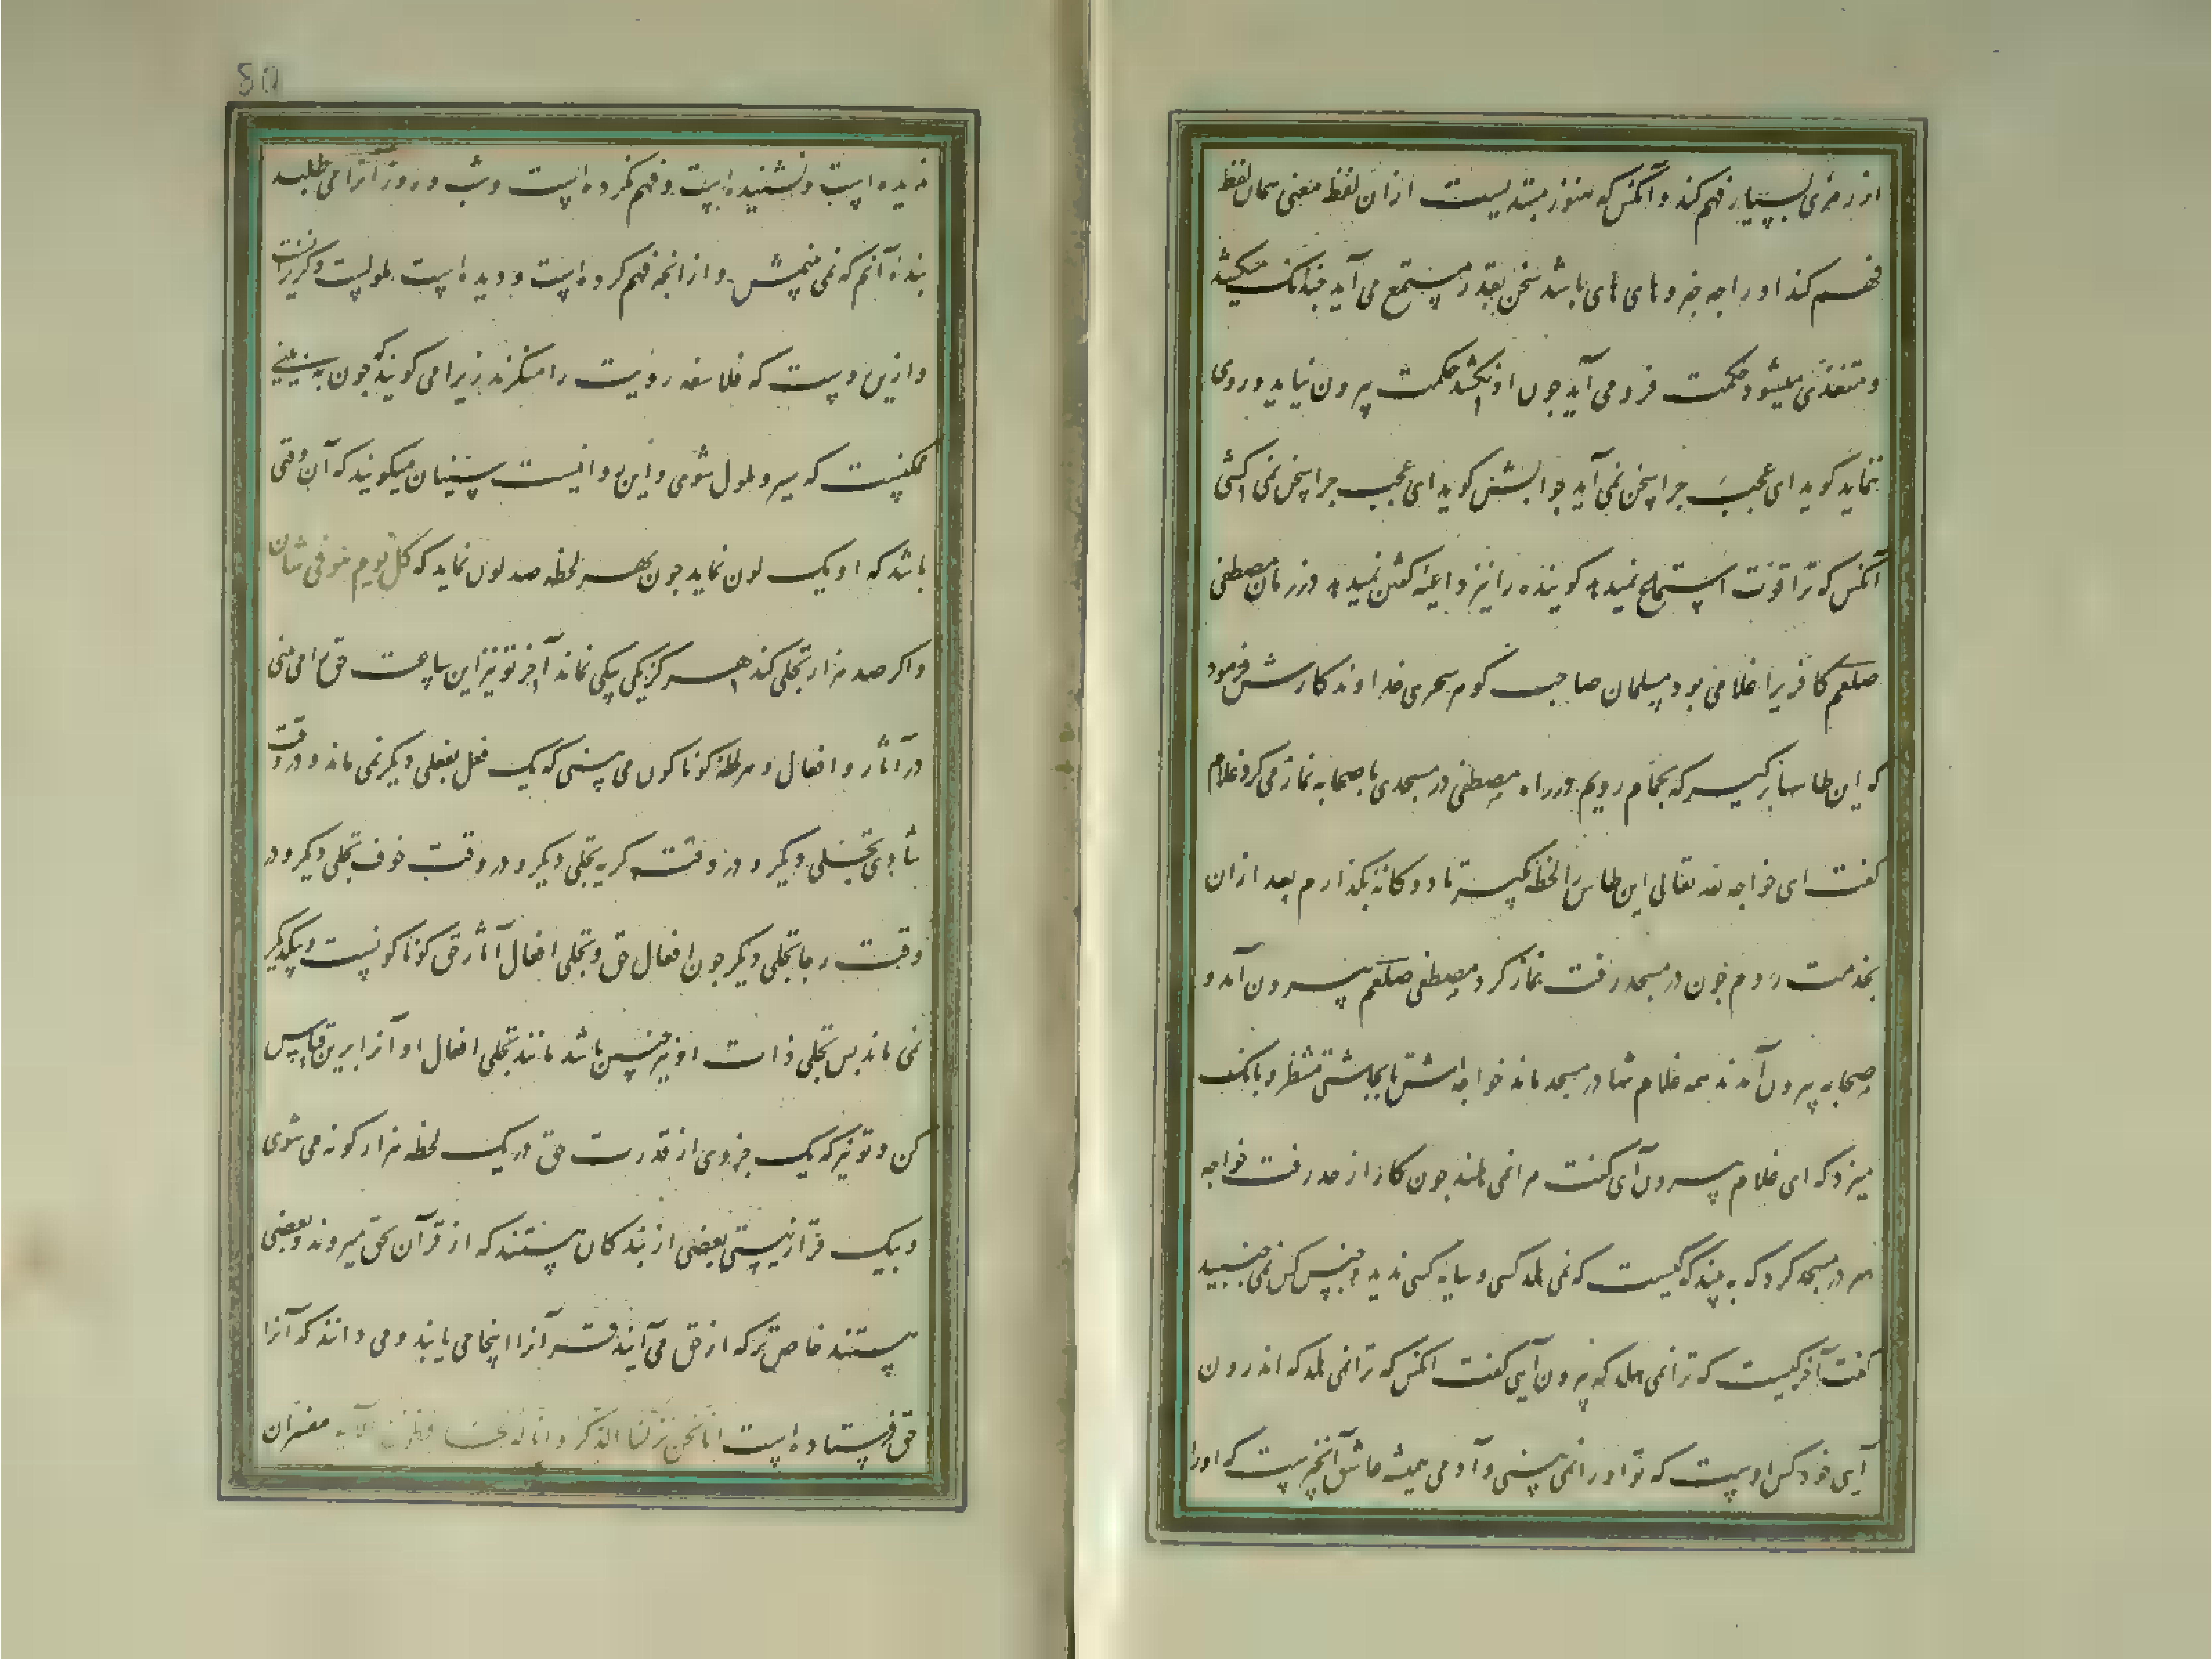 از رمزی بسیار فهم کند و آنکس که هنوز مبتدیست ازان لفظ معنی همان لفظ
فهم کند او را چه خبر و های های باشد سخن بقدر مستمع می آید چندانک میکشد
و متغذی میشود حکمت فرو می آید چون او نکشد حکمت بیرون نیاید و روی
ننماید گوید ای عجب چرا سخن نمی آید جوابش گوید ای عجب چرا سخن نمی کشی
آنکس که ترا قوت استماع نمیدهد گوینده را نیز داعیه گفتن نمیدهد در زمان مصطفی
صلعم کافریرا غلامی بود مسلمان صاحب گوهر سحری خداوندگارش فرمود
که این طاسها برگیر که بحمام رویم در راه مصطفی در مسجدی با صحابه نماز می کرد غلام
گفت ای خواجه لله تعالی این طاس را لحظه گیر تا دوگانه بگذارم بعد ازان
بخدمت روم چون در مسجد رفت نماز کرد مصطفی صلعم بیرون آمد و
صحابه بیرون آمدند همه غلام تنها در مسجد ماند خواجه اش تا بچاشتی منتظر و بانگ
میزد که ای غلام بیرون آی گفت مرا نمی هلند چون کار از حد رفت خواجه
سر در مسجد کرد که ببیند که کیست که نمی هلد کسی و سایه کسی ندید و جنبش کس نمی جنبید
گفت آخر کیست که ترا نمی هلد که بیرون آیی گفت آنکس که ترا نمی هلد که اندرون
آیی خود کس اوست که تو او را نمی بینی و آدمی همیشه عاشق آنچیزست که او را
ندیده است و نشنیده است و فهم نکرده است و شب و روز آنرا می طلبد
بنده آنم که نمی بینمش و از انچه فهم کرده است و دیده است ملولست و گریزانست
و ازین روست که فلاسفه رؤیت را منکرند زیرا می گویند که چون ببینی
ممکنست که سیر و ملول شوی و این روا نیست سنیان میگویند که آن وقتی
باشد که او یک لون نماید چون بهر لحظه صد لون نماید که کل یوم هو فی شان
و اگر صد هزار تجلی کند هرگز یکی بیکی نماند آخر تو نیز این ساعت حق را می بینی
در آثار و افعال و هر لحظه گوناگون می بینی که یک فعل بفعلی دیگر نمی ماند و در وقت
شادی تجلی دیگر و در وقت گریه تجلی دیگر و در وقت خوف تجلی دیگر و در
وقت رجا تجلی دیگر چون افعال حق و تجلی افعال آثار حق گوناگونست و بیکدیگر
نمی ماند پس تجلی ذات او نیز چنین باشد مانند تجلی افعال او آنرا برین قیاس
کن و تو نیز که یک جزوی از قدرت حق در یک لحظه هزار گونه می شوی
و بیک قرار نیستی بعضی از بندگان هستند که از قرآن بحق میروند و بعضی
هستند خاص تر که از حق می آیند قرآنرا اینجا می یابند و می دانند که آنرا
حق فرستاده است انا نحن نزلنا الذکر و انا له لحافظون الآیه مفسران